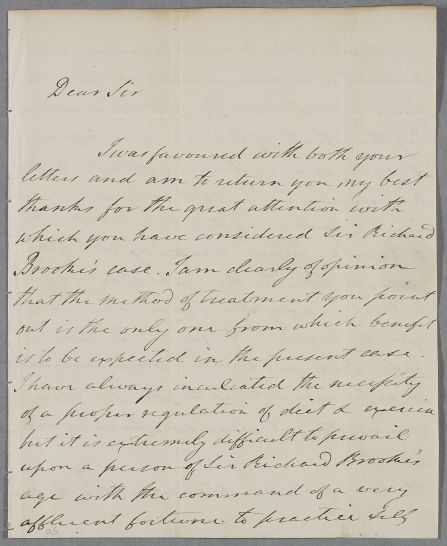 Dear Sir
I was favoured with both your
letters and am to return you my best
thanks for the great attention with
which you have considered Sir Richard
Brooke's case. I am clearly of opinion
that the method of treatment you point
out is the only one from which benefit
is to be expected in the present case.
I have always inculcated the necessity
of a proper regulation of diet & exercise
but it is extremely difficult to prevail
upon a person of Sir Richard Brooke's
age with the command of a very
affluent fortune to practice self
95